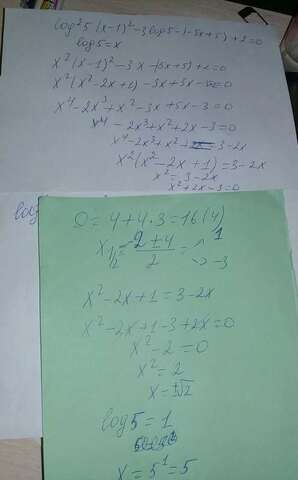 log²5 (x-1)²-3log5-(-5x+5)+2=0
log5=x
x²(x-1)²-3x-(-5x+5)+2=0
x²(x²-2x+1)-3x+5x-3=0
x⁴-2x³+x²-3x+5x-3=0
x⁴-2x³+x²+2x-3=0
x⁴-2x³+x²=3-2x
x²(x²-2x+1)=3-2x
x²=3-2x
x²+2x-3=0
log
D=4+4·3=16(4)
x½=-2±4/2= 1
-3
x²-2x+1=3-2x
x²-2x+1-3+2x=0
x²-2=0
x²=2
x=±√2
log5=1
x=5¹=5